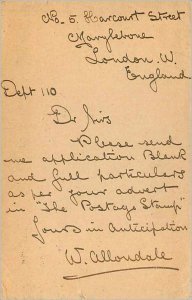 No. 5. Harcourt Street
Marylebone
London. W.
England.
Dept 110
Dr Sirs
Please send
me application Blank
and full particulars
as per your advert
in "The Postage Stamp"
Yours in Anticipation
W. Allondale